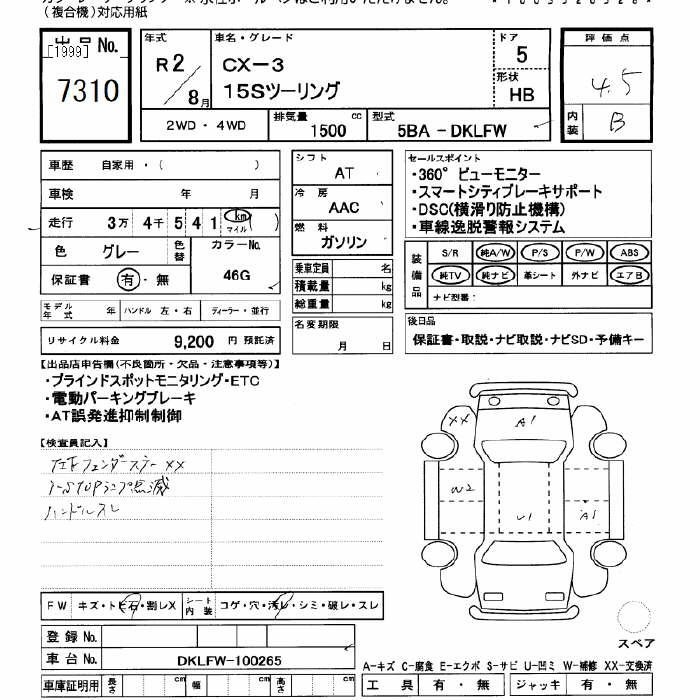 （複合機）対応用紙
出品No.
[1999]
7310
年式
R2/8月
車名・グレード
CX-3
15Sツーリング
ドア
5
形状
HB
評価点
4.5
内装
B
2WD・4WD
排気量
1500
cc
型式
5BA-DKLFW
車歴 自家用・（ ）
車検 年 月
走行 3万 4千 5 4 1 km マイル ( )
色 グレー
色替
カラーNo.
46G
保証書 有・無
モデル年式 年
ハンドル 左・右
ディーラー・並行
リサイクル料金 9,200 円 預託済
シフト
AT
冷房
AAC
燃料
ガソリン
乗車定員 名
積載量 kg
総重量 kg
名変期限
月 日
セールスポイント
・360° ビューモニター
・スマートシティブレーキサポート
・DSC(横滑り防止機構)
・車線逸脱警報システム
装備品
S/R 純A/W P/S P/W ABS
純TV 純ナビ 革シート 外ナビ エアB
ナビ型番：
後日品
保証書・取説・ナビ取説・ナビSD・予備キー
【出品店申告欄(不良箇所・欠品・注意事項等)】
・ブラインドスポットモニタリング・ETC
・電動パーキングブレーキ
・AT誤発進抑制制御
【検査員記入】
左Fフェンダーステーxx
I-STOPランプ点滅
ハンドルスレ
XX
A1
W2
U1
A1
FW キズ・トビ石・割レX
シート内装 コゲ・穴・汚レ・シミ・破レ・スレ
登録No.
車台No. DKLFW-100265
車庫証明用 長さ cm 幅 cm 高さ cm
スペア
A-キズ C-腐食 E-エクボ S-サビ U-凹ミ W-補修 XX-交換済
工具 有・無 ジャッキ 有・無